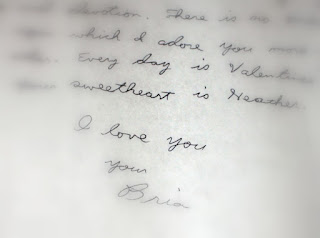 devotion. There is no
which I adore you more
Every day is Valentines
sweetheart is Heather.
I love you
your
Brian